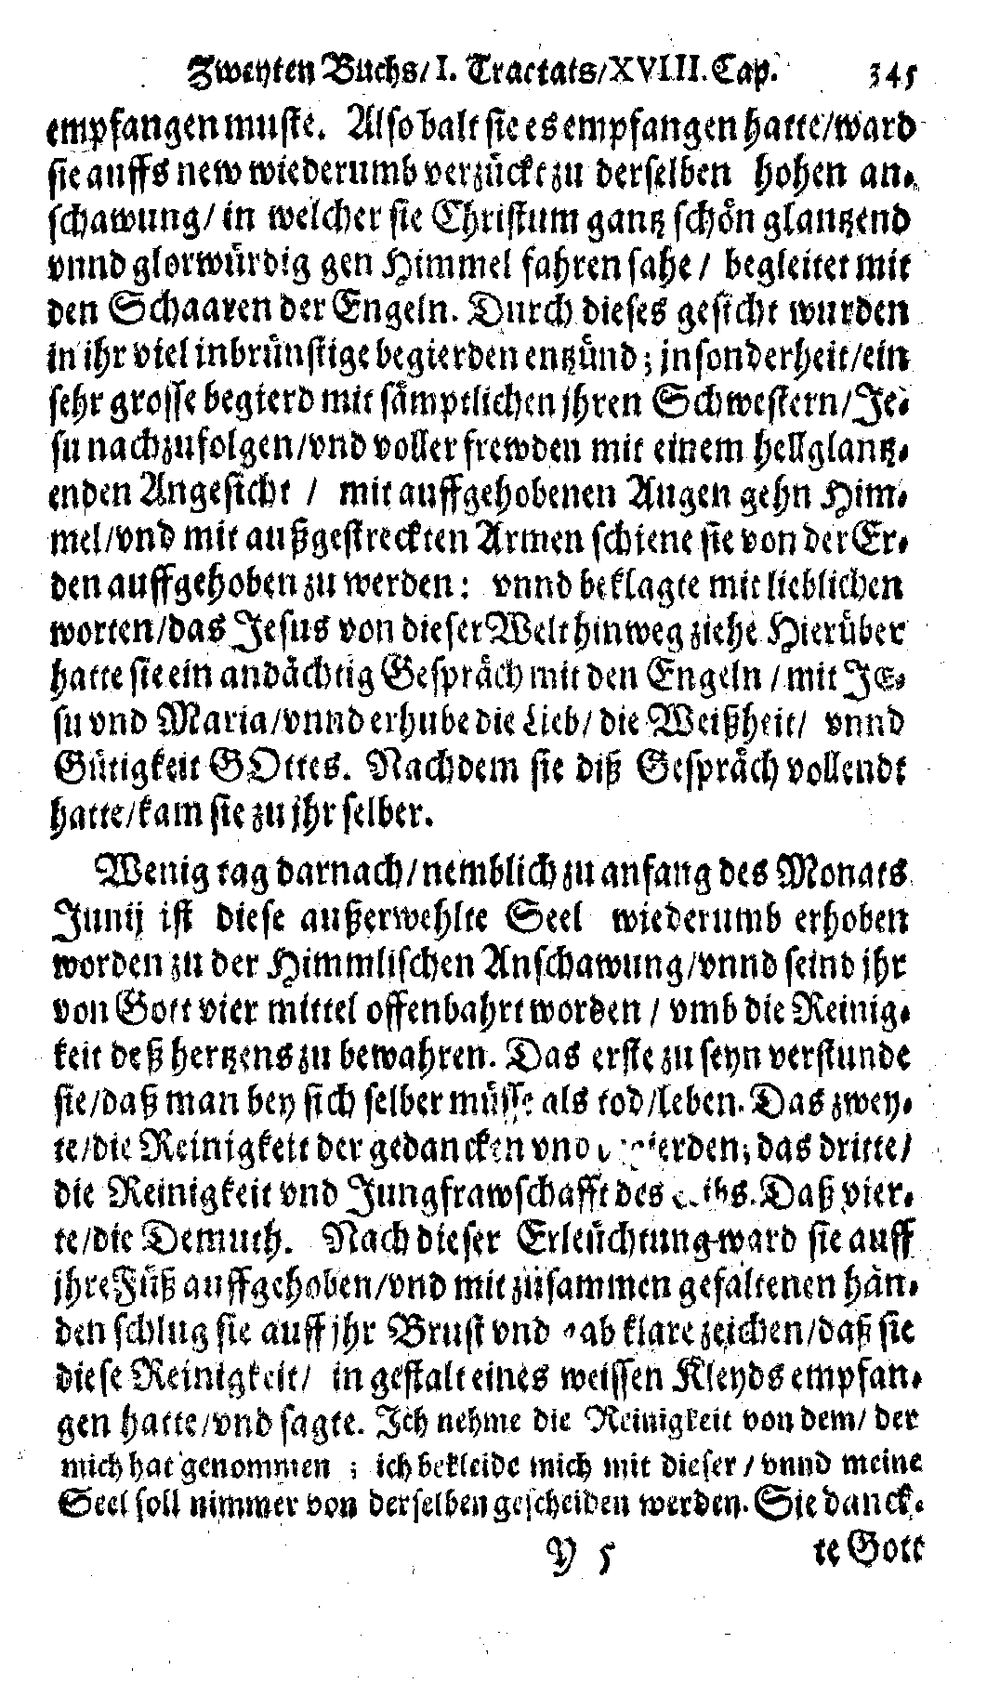 Zweyten Buchs/ I. Tractats/ XVIII. Cap. 345
empfangen muste. Also balt sie es empfangen hatte/ward
sie auffs new wiederumb verzückt zu derselben hohen an-
schawung/ in welcher sie Christum gantz schön glantzend
vnnd glorwürdig gen Himmel fahren sahe/ begleitet mit
den Schaaren der Engeln. Durch dieses gesicht wurden
in ihr viel inbrünstige begierden entzünd; insonderheit/ein
sehr grosse begierd mit sämptlichen jhren Schwestern/ Je-
su nachzufolgen/vnd voller frewden mit einem hellglantz-
enden Angesicht / mit auffgehobenen Augen gehn Him-
mel/vnd mit außgestreckten Armen schiene sie von der Er-
den auffgehoben zu werden: vnnd beklagte mit lieblichen
worten/das Jesus von dieser Welt hinweg ziehe Hierüber
hatte sie ein andächtig Gespräch mit den Engeln / mit JE-
su vnd Maria/vnnd erhube die Lieb/ die Weißheit/ vnnd
Gütigkeit GOttes. Nachdem sie diß Gespräch vollendt
hatte/kam sie zu jhr selber.
Wenig tag darnach/nemblich zu anfang des Monats
Junij ist diese außerwehlte Seel wiederumb erhoben
worden zu der Himmlischen Anschawung/vnnd seind jhr
von Gott vier mittel offenbahrt worden / vmb die Reinig-
keit deß hertzens zu bewahren. Das erste zu seyn verstunde
sie/daß man bey sich selber müsse als tod/leben. Das zwey-
te/die Reinigkeit der gedancken vnd; das dritte/
die Reinigkeit vnd Jungfrawschafft des. Daß vier-
te/die Demuth. Nach dieser Erleuchtung ward sie auff
jhre Füß auffgehoben/vnd mit züsammen gefaltenen hän-
den schlug sie auff jhr Brust vnd gab klare zeichen/daß sie
diese Reinigkeit/ in gestalt eines weissen Kleyds empfan-
gen hatte/vnd sagte. Ich nehme die Reinigkeit von dem/ der
mich hat genommen ; ich bekleide mich mit dieser / vnnd meine
Seel soll nimmer von derselben gescheiden werden. Sie danck-
Y 5 te Gott